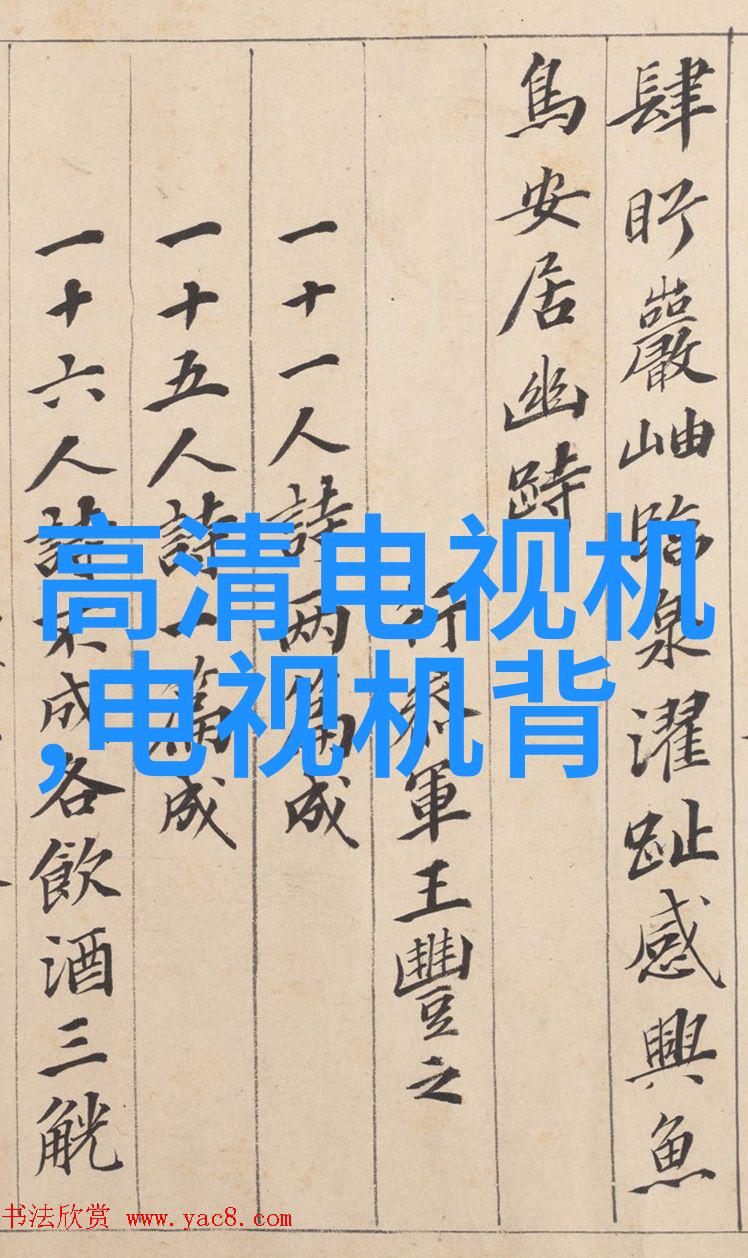 肆眄巖岫臨泉濯趾感興魚
鳥安居幽跱
行參軍王豐之
一十一人詩两篇成
一十五人詩一篇成
一十六人詩不成各飲酒三觥
高清电视机
,电视机背
书法欣赏 www.yac8.com